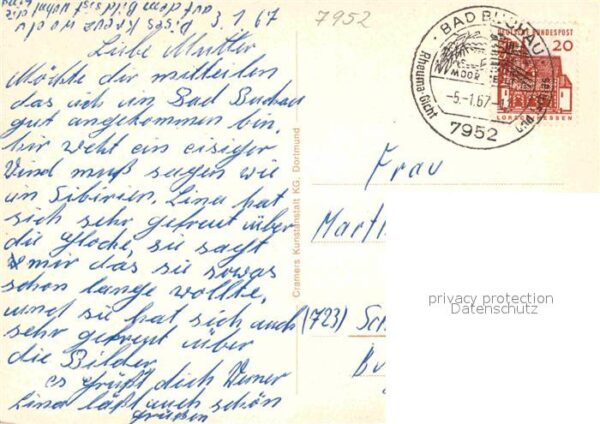 Dises Kreuz wo du
auf dem Bild sist wohnt die
3.1.67
7952
Liebe Mutter
Möchte dir mitteilen
das ich in Bad Buchau
gut angekommen bin,
hir weht ein eisiger
Vind muß sagen wie
in Sibirien, Lina hat
sich sehr gefreut über
die Gloche, sie sagt
mir das sie sowas
schon lange wollte,
und sie hat sich auch
sehr gefreut über
die Bilder.
es Grüßt dich Werner
Lina läßt auch schön
grüßen
Cramers Kunstanstalt KG. Dortmund
BAD BUCHAU
MOOR
Rheuma-Gicht
-5.-1.67
7952
DEUTSCHE BUNDESPOST
20
LORSCH HESSEN
Frau
Mart
(723) Sch
privacy protection
Datenschutz